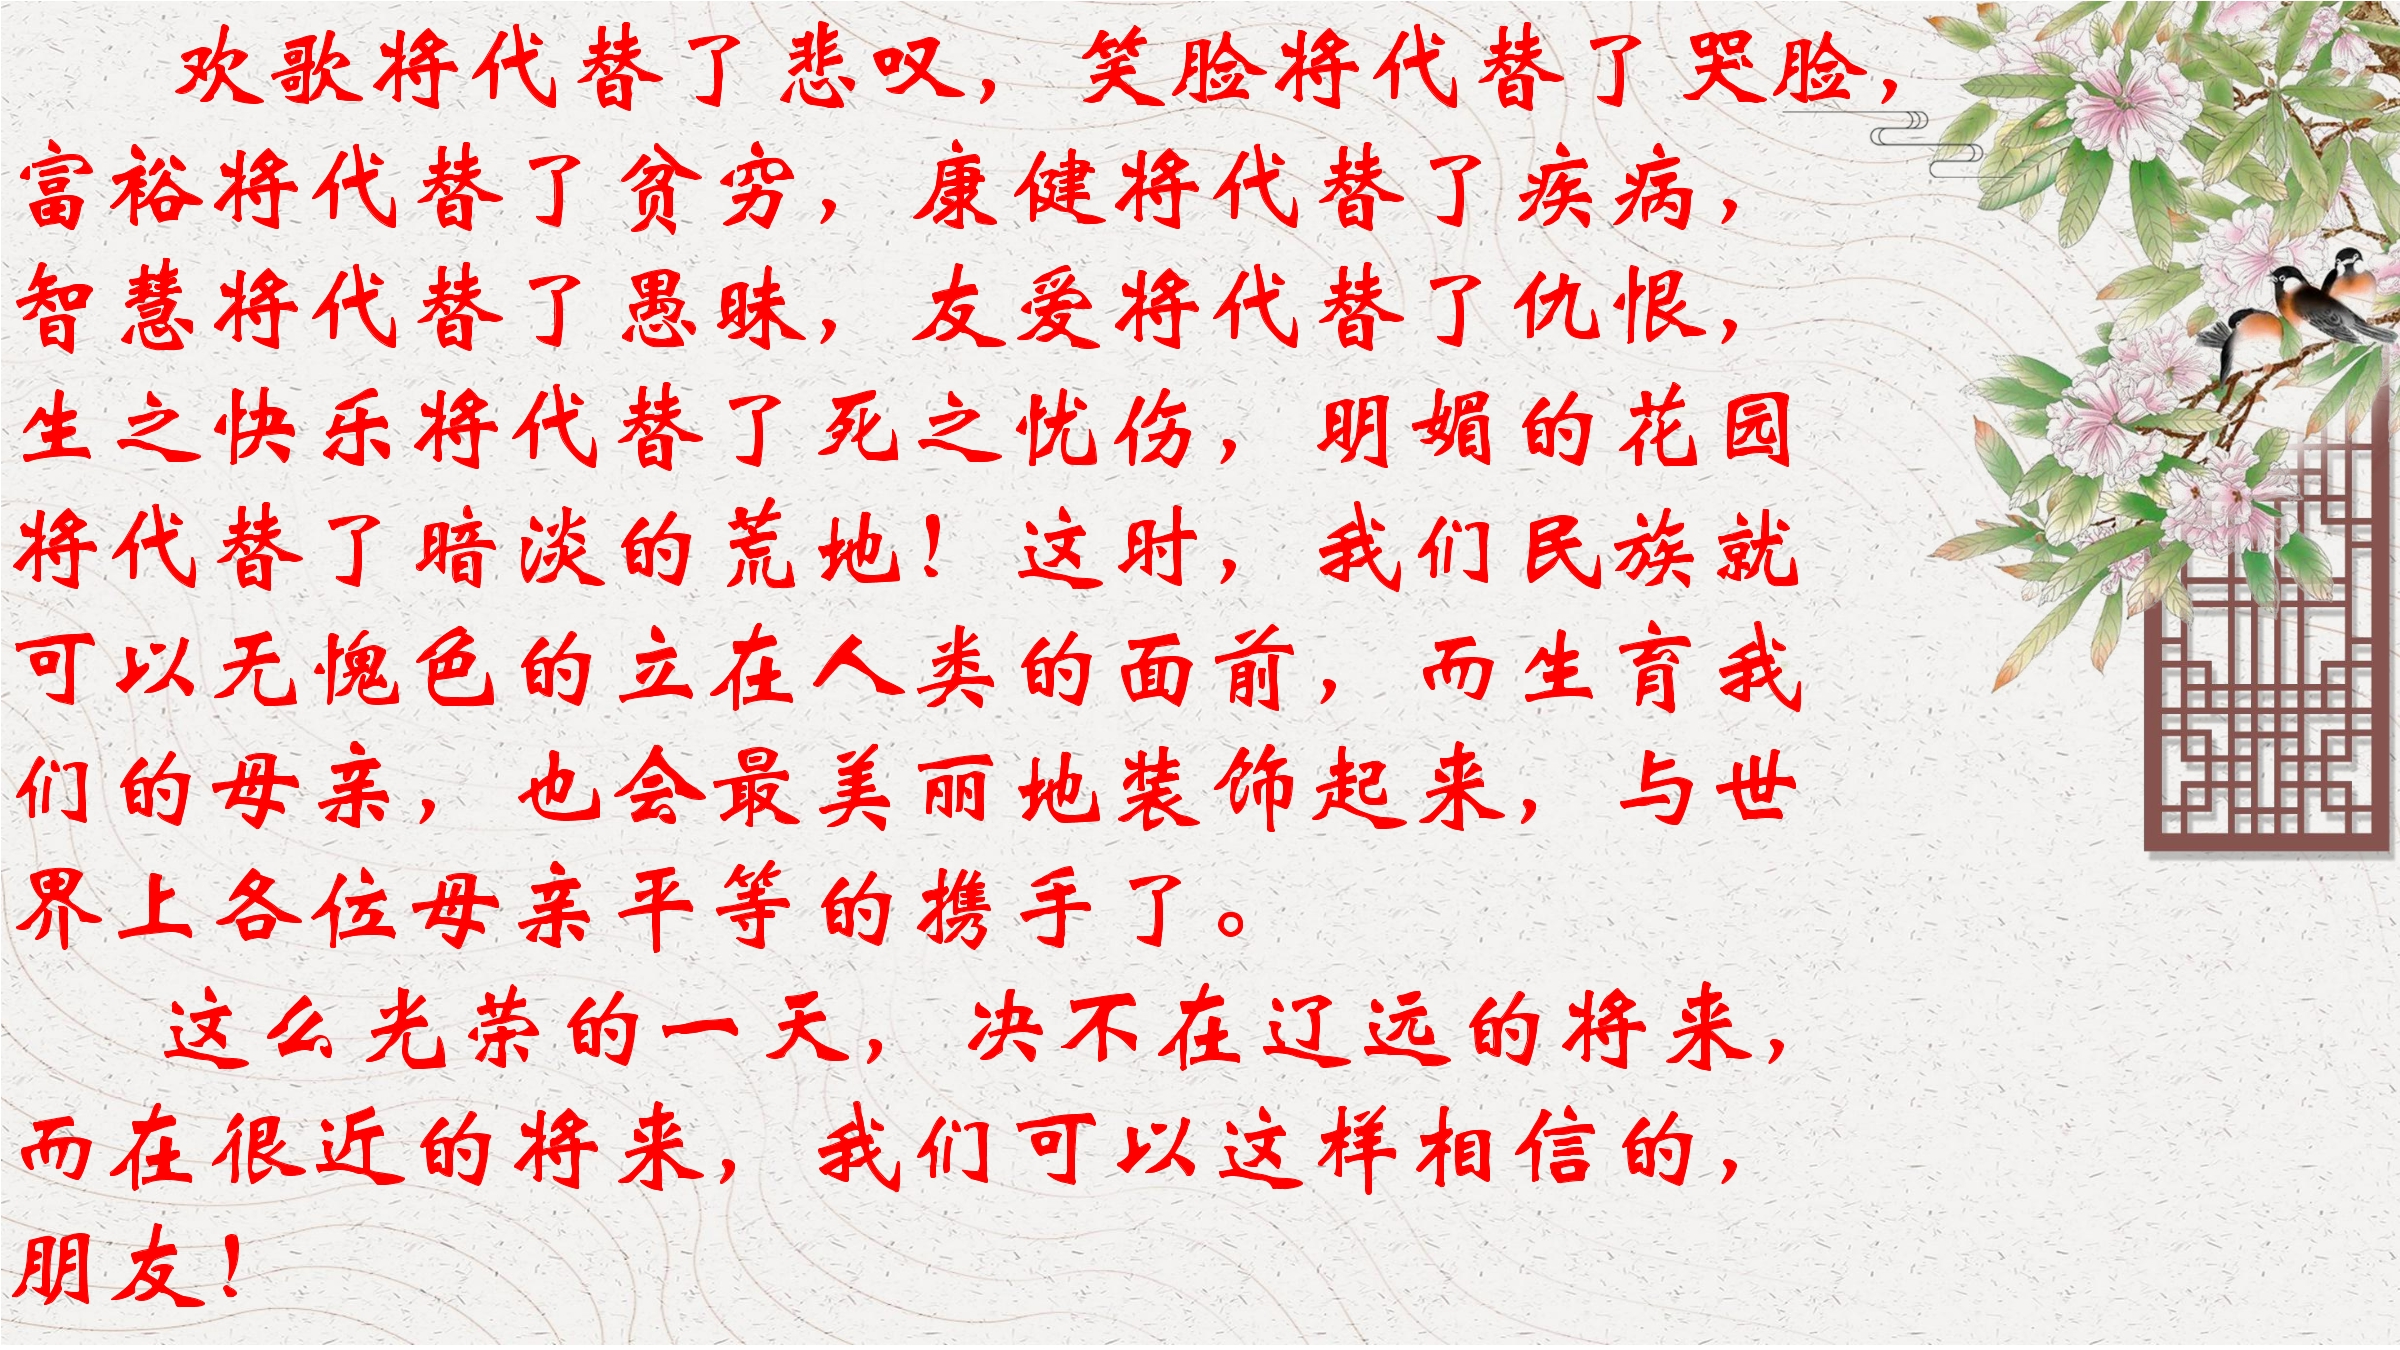 欢歌将代替了悲叹，笑脸将代替了哭脸，
富裕将代替了贫穷，康健将代替了疾病，
智慧将代替了愚昧，友爱将代替了仇恨，
生之快乐将代替了死之忧伤，明媚的花园
将代替了暗淡的荒地！这时，我们民族就
可以无愧色的立在人类的面前，而生育我
们的母亲，也会最美丽地装饰起来，与世
界上各位母亲平等的携手了。
这么光荣的一天，决不在辽远的将来，
而在很近的将来，我们可以这样相信的，
朋友！